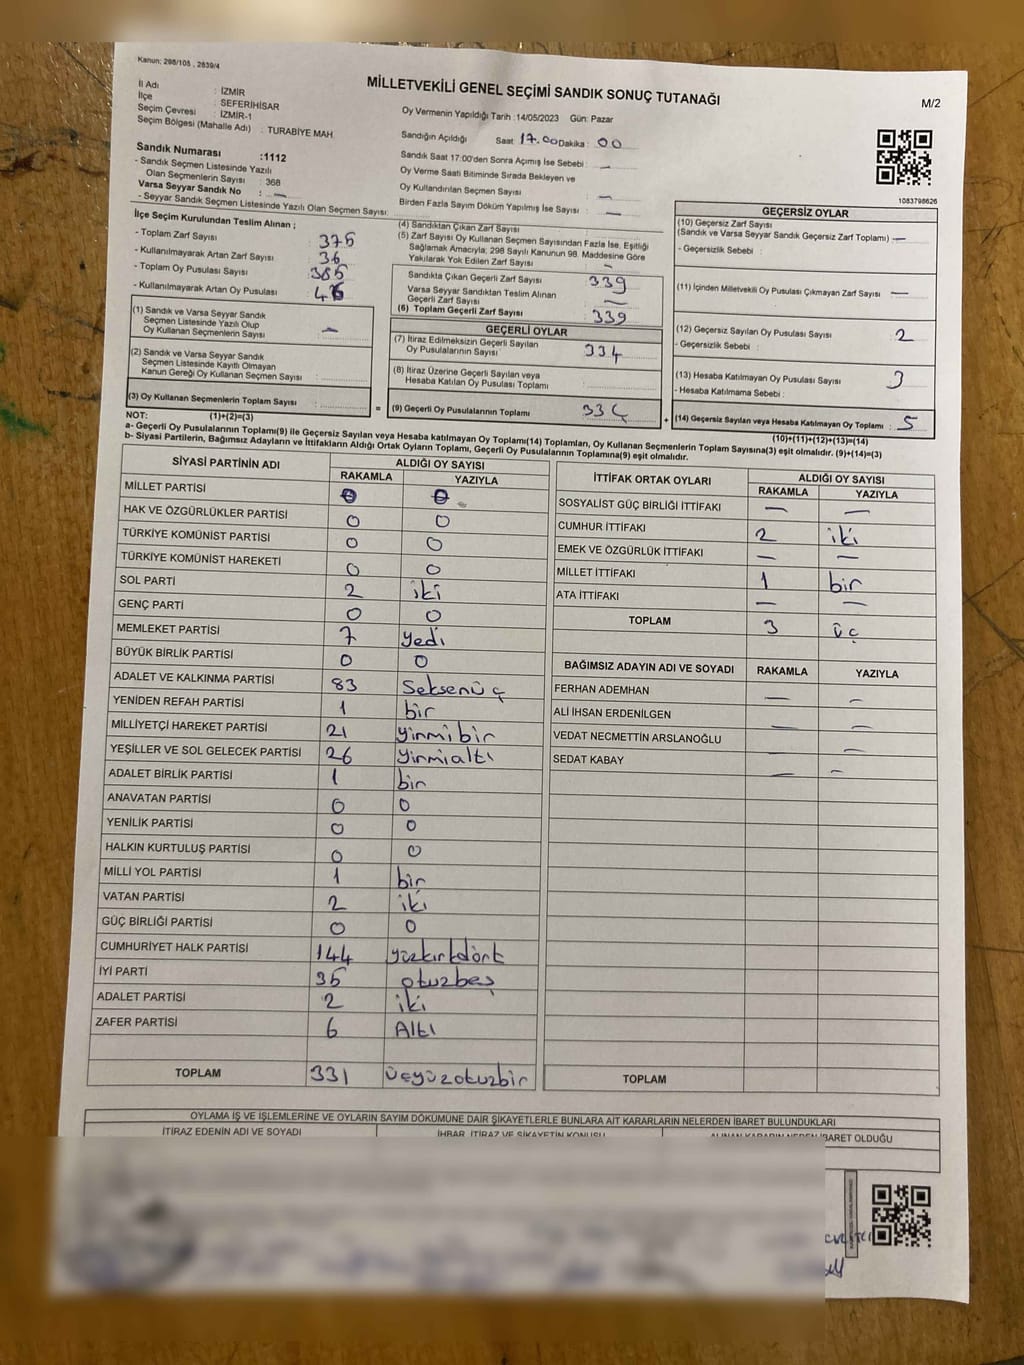 Kanun; 298/105 , 2839/4
MİLLETVEKİLİ GENEL SEÇİMİ SANDIK SONUÇ TUTANAĞI
M/2
İl Adı : İZMİR
İlçe : SEFERİHİSAR
Seçim Çevresi : İZMİR-1
Seçim Bölgesi (Mahalle Adı) : TURABİYE MAH.
Oy Vermenin Yapıldığı Tarih :14/05/2023 Gün: Pazar
Sandığın Açıldığı Saat 17.00 Dakika : 00
Sandık Saat 17:00'den Sonra Açımış İse Sebebi : —
Oy Verme Saati Bitiminde Sırada Bekleyen ve
Oy Kullandırılan Seçmen Sayısı —
Birden Fazla Sayım Döküm Yapılmış İse Sayısı : —
Sandık Numarası :1112
- Sandık Seçmen Listesinde Yazılı
Olan Seçmenlerin Sayısı : 368
Varsa Seyyar Sandık No : —
- Seyyar Sandık Seçmen Listesinde Yazılı Olan Seçmen Sayısı:
1083798626
İlçe Seçim Kurulundan Teslim Alınan ;
- Toplam Zarf Sayısı 375
- Kullanılmayarak Artan Zarf Sayısı : 36
- Toplam Oy Pusulası Sayısı : 385
- Kullanılmayarak Artan Oy Pusulası :
(1) Sandık ve Varsa Seyyar Sandık
Seçmen Listesinde Yazılı Olup
Oy Kullanan Seçmenlerin Sayısı : —
(2) Sandık ve Varsa Seyyar Sandık
Seçmen Listesinde Kayıtlı Olmayan
Kanun Gereği Oy Kullanan Seçmen Sayısı :
(3) Oy Kullanan Seçmenlerin Toplam Sayısı :
(4) Sandıktan Çıkan Zarf Sayısı :
(5) Zarf Sayısı Oy Kullanan Seçmen Sayısından Fazla İse, Eşitliği
Sağlamak Amacıyla; 298 Sayılı Kanunun 98. Maddesine Göre
Yakılarak Yok Edilen Zarf Sayısı : —
Sandıkta Çıkan Geçerli Zarf Sayısı : 339
Varsa Seyyar Sandıktan Teslim Alınan
Geçerli Zarf Sayısı : —
(6) Toplam Geçerli Zarf Sayısı : 339
GEÇERLİ OYLAR
(7) İtiraz Edilmeksizin Geçerli Sayılan
Oy Pusulalarının Sayısı : 334
(8) İtiraz Üzerine Geçerli Sayılan veya
Hesaba Katılan Oy Pusulası Toplamı :
= (9) Geçerli Oy Pusulalarının Toplamı : 334
GEÇERSİZ OYLAR
(10) Geçersiz Zarf Sayısı
(Sandık ve Varsa Seyyar Sandık Geçersiz Zarf Toplamı) —
- Geçersizlik Sebebi :
(11) İçinden Milletvekili Oy Pusulası Çıkmayan Zarf Sayısı : —
(12) Geçersiz Sayılan Oy Pusulası Sayısı : 2
- Geçersizlik Sebebi :
(13) Hesaba Katılmayan Oy Pusulası Sayısı : 3
- Hesaba Katılmama Sebebi :
+ (14) Geçersiz Sayılan veya Hesaba Katılmayan Oy Toplamı : 5
NOT: (1)+(2)=(3)
(10)+(11)+(12)+(13)=(14)
a- Geçerli Oy Pusulalarının Toplamı(9) ile Geçersiz Sayılan veya Hesaba katılmayan Oy Toplamı(14) Toplamları, Oy Kullanan Seçmenlerin Toplam Sayısına(3) eşit olmalıdır. (9)+(14)=(3)
b- Siyasi Partilerin, Bağımsız Adayların ve İttifakların Aldığı Ortak Oyların Toplamı, Geçerli Oy Pusulalarının Toplamına(9) eşit olmalıdır.
SİYASİ PARTİNİN ADI ALDIĞI OY SAYISI
RAKAMLA YAZIYLA
MİLLET PARTİSİ 0 0
HAK VE ÖZGÜRLÜKLER PARTİSİ 0 0
TÜRKİYE KOMÜNİST PARTİSİ 0 0
TÜRKİYE KOMÜNİST HAREKETİ 0 0
SOL PARTİ 2 iki
GENÇ PARTİ 0 0
MEMLEKET PARTİSİ 7 yedi
BÜYÜK BİRLİK PARTİSİ 0 0
ADALET VE KALKINMA PARTİSİ 83 Seksenüç
YENİDEN REFAH PARTİSİ 1 bir
MİLLİYETÇİ HAREKET PARTİSİ 21 yirmibir
YEŞİLLER VE SOL GELECEK PARTİSİ 26 yirmialtı
ADALET BİRLİK PARTİSİ 1 bir
ANAVATAN PARTİSİ 0 0
YENİLİK PARTİSİ 0 0
HALKIN KURTULUŞ PARTİSİ 0 0
MİLLİ YOL PARTİSİ 1 bir
VATAN PARTİSİ 2 iki
GÜÇ BİRLİĞİ PARTİSİ 0 0
CUMHURİYET HALK PARTİSİ 144 yüzkırkdört
İYİ PARTİ 35 otuzbeş
ADALET PARTİSİ 2 iki
ZAFER PARTİSİ 6 Altı
TOPLAM 331 üçyüzotuzbir
İTTİFAK ORTAK OYLARI ALDIĞI OY SAYISI
RAKAMLA YAZIYLA
SOSYALİST GÜÇ BİRLİĞİ İTTİFAKI — —
CUMHUR İTTİFAKI 2 iki
EMEK VE ÖZGÜRLÜK İTTİFAKI — —
MİLLET İTTİFAKI 1 bir
ATA İTTİFAKI — —
TOPLAM 3 üç
BAĞIMSIZ ADAYIN ADI VE SOYADI RAKAMLA YAZIYLA
FERHAN ADEMHAN — —
ALİ İHSAN ERDENİLGEN — —
VEDAT NECMETTİN ARSLANOĞLU — —
SEDAT KABAY — —
TOPLAM
OYLAMA İŞ VE İŞLEMLERİNE VE OYLARIN SAYIM DÖKÜMÜNE DAİR ŞİKAYETLERLE BUNLARA AİT KARARLARIN NELERDEN İBARET BULUNDUKLARI
İTİRAZ EDENİN ADI VE SOYADI İHBAR, İTİRAZ VE ŞİKAYETİN KONUSU ALINAN KARARIN NEDEN İBARET OLDUĞU